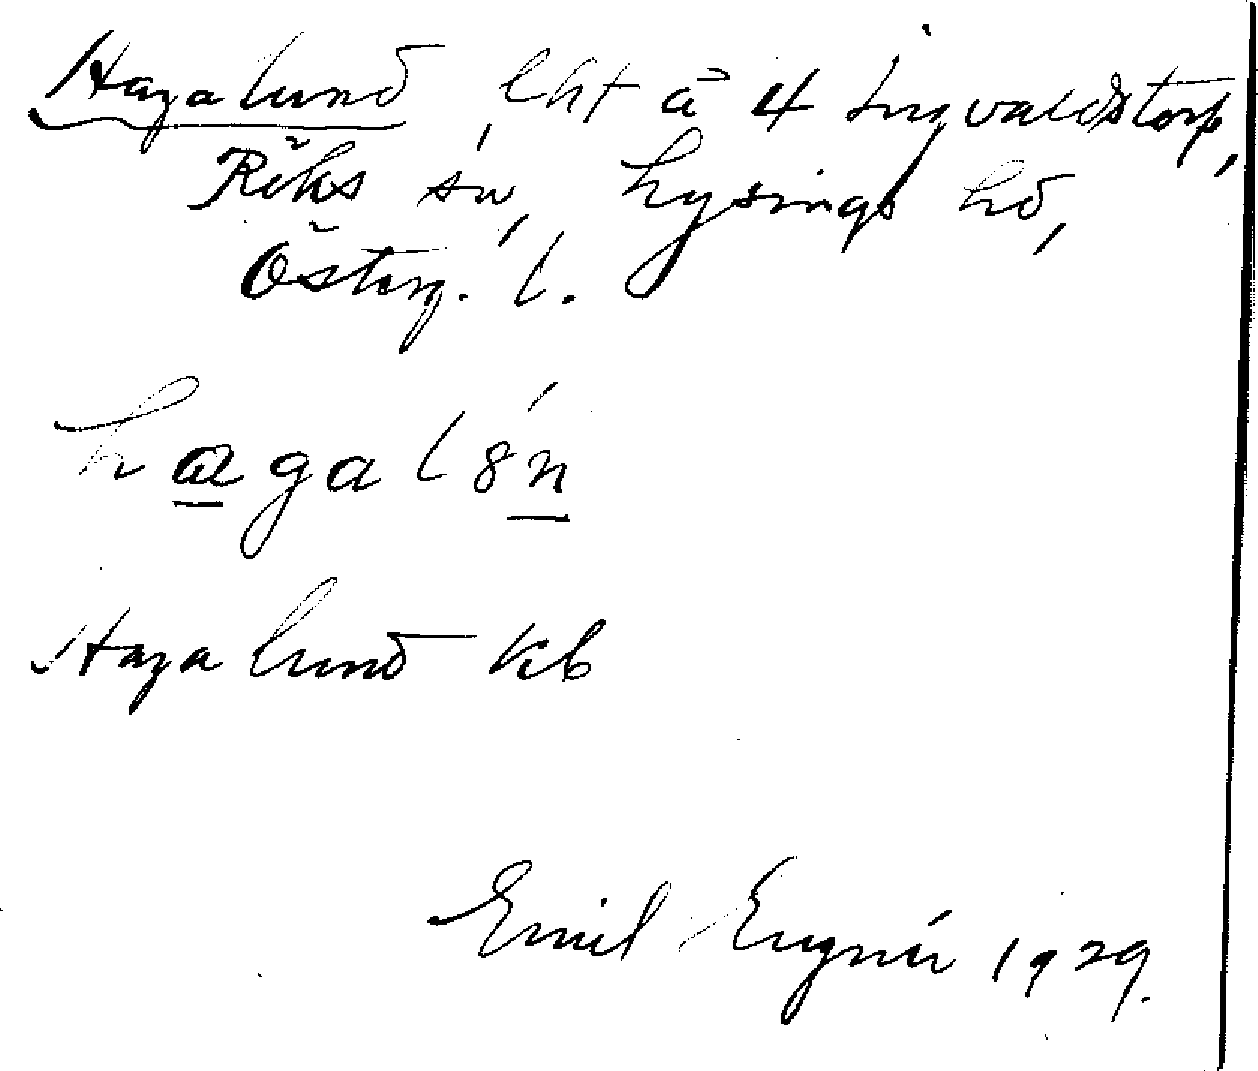 Hagalund, lht å 4 Ingvaldstorp,
Röks sn, Lysings hd,
Österg. l.
hagalón
Hagalund kb
Emil Engnér 1929.